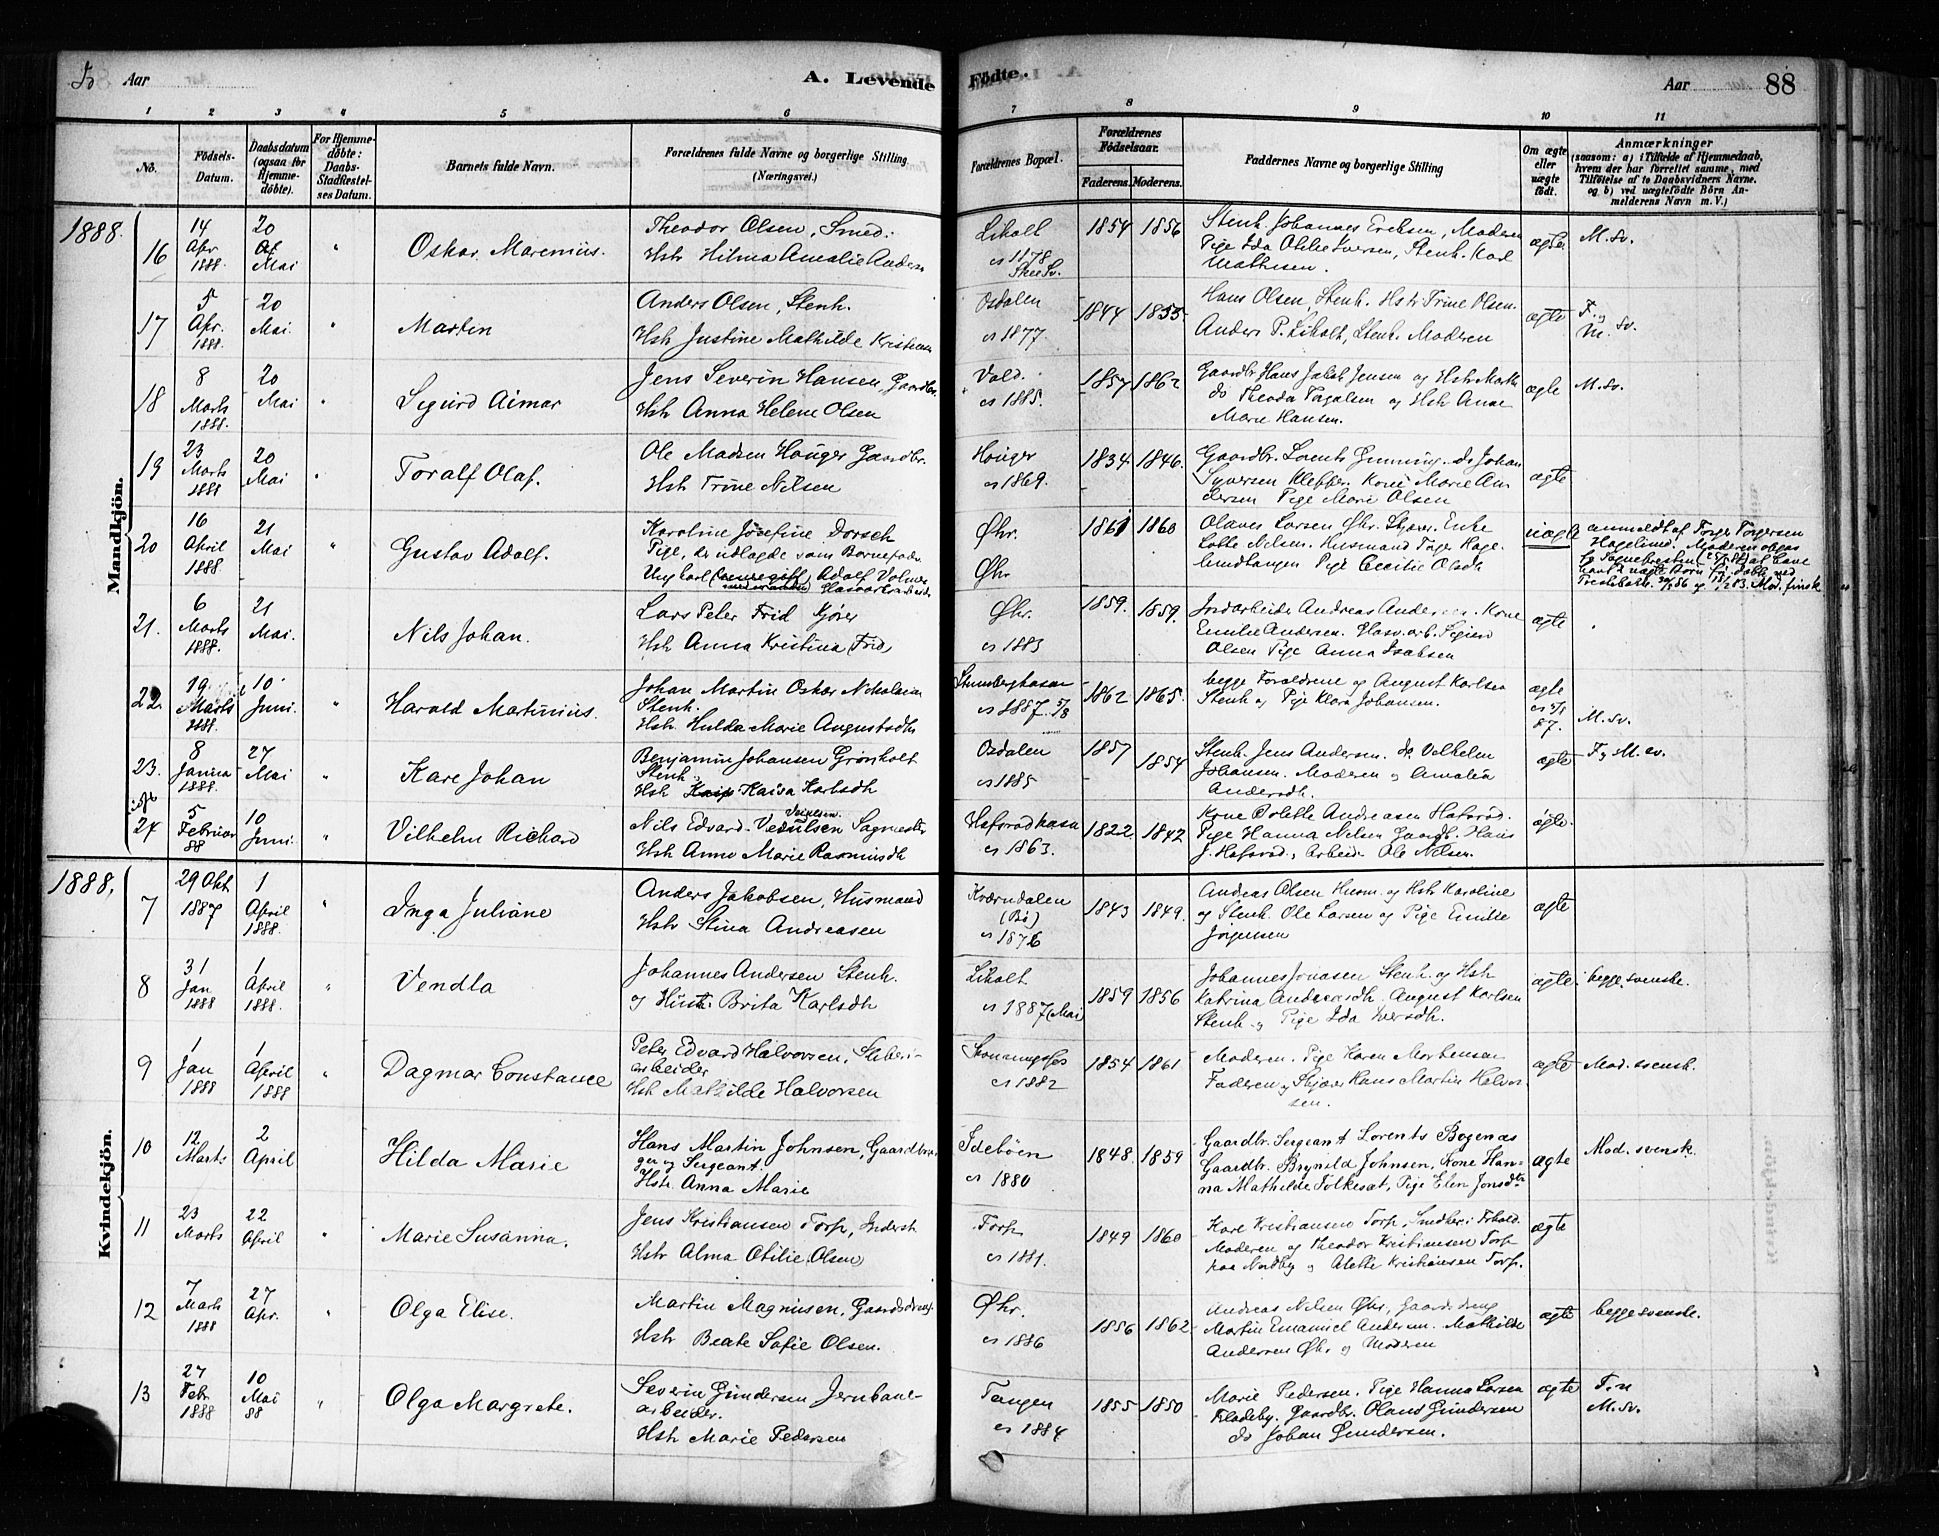 Aar
A. Levende
Fødte.
Aar
88
1 2 3 4 5 6 7 8 9 10 11
No.
Fødsels-
Datum.
Daabsdatum
(ogsaa for
Hjemme-
døbte).
For Hjemme-
døbte:
Daabs-
Stadfæstel-
ses Datum.
Barnets fulde Navn.
Forældrenes fulde Navne og borgerlige Stilling
(Næringsvei.)
Forældrenes Bopæl.
Forældrenes
Fødselsaar.
Faderens. Moderens.
Faddernes Navne og borgerlige Stilling
Om ægte
eller
uægte
født.
Anmærkninger
(saasom: a) i Tilfælde af Hjemmedaab,
hvem der har forrettet samme, med
Tilføielse af to Daabsvidners Navne,
og b) ved uægtefødte Børn An-
melderens Navn m. V.)
Mandkjön.
1888.
16
14
Apr
1888.
20
Mai
"
Oskar Marenius.
Theodor Olsen, Smed.
Hstr Hilma Amalie Anders
Liholt
1854
1856
Stenh. Johannes Eriksen, Moderen
Pige Ida Otilie Iversen, Stenh. Karl
Mathisen.
ægte
M. sv.
17
5
Apr.
1888.
20
Mai.
"
Martin
Anders Olsen, Stenh.
Hstr Justine Mathilde Kristensen
Osdalen
es 1877.
1844
1855
Hans Olsen, Stenh. Hstr Trine Olsen.
Anders P. Liholt, Stenh. Moderen
ægte
F. og
M. sv.
18
8
Marts
1888.
20
Mai
"
Sigurd Aimar
Jens Severin Hansen, Gaardbr.
Hstr Anna Helene Olsen
Vold.
es 1885.
1857
1862
Gaardbr Hans Jakob Jensen og Hstr Marth
do Theodor og Hstr Anne
Marie Hansen.
ægte
M. sv.
19
23
Marts
1888
20
Mai
"
Toralf Olaf.
Ole Madsen Houger Gaardbr.
Hstr Trine Nilsen
Houger
es 1869.
1834
1846.
Gaardbr. Lorents do Johan
Syversen Klepper. Kone Marie An
dersen Pige Marie Olsen
ægte
20
16
April
1888.
21
Mai
"
Gustav Adolf.
Karoline Josefine Dorsch
Pige, der udlagde som Barnefader
Ungkarl Adolf Volmer
Øhr.
Øhr
1861
1860
Olaves Larsen Øhr. Skjærer. Enke
Lotte Nilsen. Husmand Torger Hage-
lundtangen Pige Cecilie Olsdh
uægte
anmeldt af Torger Torgersen
Hagelund.
21.
6
Marts
1888.
21
Mai.
"
Nils Johan.
Lars Peter Frid Kjører
Hstr Anna Kristina Frid
Øhr.
es 1883
1859.
1859.
Jordarbeider Andreas Andersen. Kone
Emilie Andersen. Hasv. arb. Sigurd
Olsen Pige Anna Isaksen
ægte
22
19
Marts
1888.
10
Juni.
"
Harald Martinius.
Johan Martin Oskar Nikolaisen
Stenh.
Hstr. Hulda Marie Augustsdtr
es 1887. 5/8
1862
1865.
begge Forældrene og August Karlsen
Stenh og Pige Klara Johansen.
ægte
87.
M. sv.
23.
8
Janua
1888.
27
Mai
"
Kare Johan
Benjamin Johansen Grönholt
Stenh
Hstr Kaisa Karlsdh
Osdalen
es 1885
1857
1854
Stenh. Jens Andersen. do Vilhelm
Johansen. Moderen og Amalia
Andersdh.
ægte
F og M. sv.
24
5
Februar
88
10
Juni.
"
Vilhelm Richard
Nils Edvard Sagmester
Hstr Anne Marie Rasmusdh
Hafsrødkasa
es 1863.
1822
1842
Kone Oolette Andreasen Hafsrød.
Pige Hanna Nilsen Gaardb. Hans
J. Hafsrød, Arbeid. Ole Nilsen.
ægte.
Kvindekjön.
1888,
7
29 Okt
1887
1
April
1888.
"
Inga Juliane
Anders Jakobsen, Husmand
Hstr Stina Andreasen
Kværndalen
(Bø)
es 1876
1843
1849.
Andreas Olsen Husm. og Hstr Karoline
og Stenh. Ole Larsen og Pige Emilie
Jørgensen
ægte
8
31
Jan
1888
1
April
1888.
"
Vendla
Johannes Andersen Stenh.
og Hustr. Brita Karlsdh
Liholt
es 1887 (Mai
1859
1856
Johannes Jonasen Stenh. og Hstr
Katrina Andreasdh. August Karlsen
Stenh. og Pige Ida Iversdh.
ægte.
begge svenske.
9
1
Jan
1888
1
April
1888
"
Dagmar Constance
Peter Edvard Halvorsen, Sliberi-
arbeider
Hstr Mathilde Halvorsen
Skonningsfos
es 1882
1854
1861
Moderen. Pige Karen Mortensen
Faderen og Skjærer Hans Martin Halvor
sen.
ægte
Mod. svensk.
10
12
Marts
2
April
Hilda Marie
Hans Martin Johnsen, Gaardbru
ger og Sergeant.
Hstr. Anna Marie
Idebøen
es 1880
1848.
1859
Gaardbr. Sergeant Lorents Bogenæs
Gaardbr. Brynild Johnsen, Kone Han-
na Mathilde Folkesæt, Pige Elen Jonsdtr
ægte
Mod. svensk.
11
23
Marts
22
April
"
Marie Susanna.
Jens Kristiansen Torp, Inderst
Hstr Alma Otilie Olsen
Torp
es 1881.
1849
1860
Karl Kristiansen Torp,
Moderen og Theodor Kristiansen Torp
paa Nordby og Alette Kristiansen Torp.
ægte
12
7
Marts
1888
27
Apr.
"
Olga Elise.
Martin Magnusen, Gaardsdreng
Hstr Beate Sofie Olsen.
Øhr.
es 1886
1856
1862
Andreas Nilsen Øhr, Gaardsdreng
Martin Emanuel Andersen. Mathilde
Andersen Øhr og Moderen
ægte
begge svenske.
13
27
Febr.
1888
10
Mai
88
"
Olga Margrete.
Severin Gundersen Jernbane-
arbeider.
Hstr Marie Pedersen
Tangen
es 1884
1855
1850
Marie Pedersen. Pige Hanna Larsen
Fladeby. Gaardbr. Olaus Gundersen
do Johan Gundersen.
ægte
F. n
M. sv.